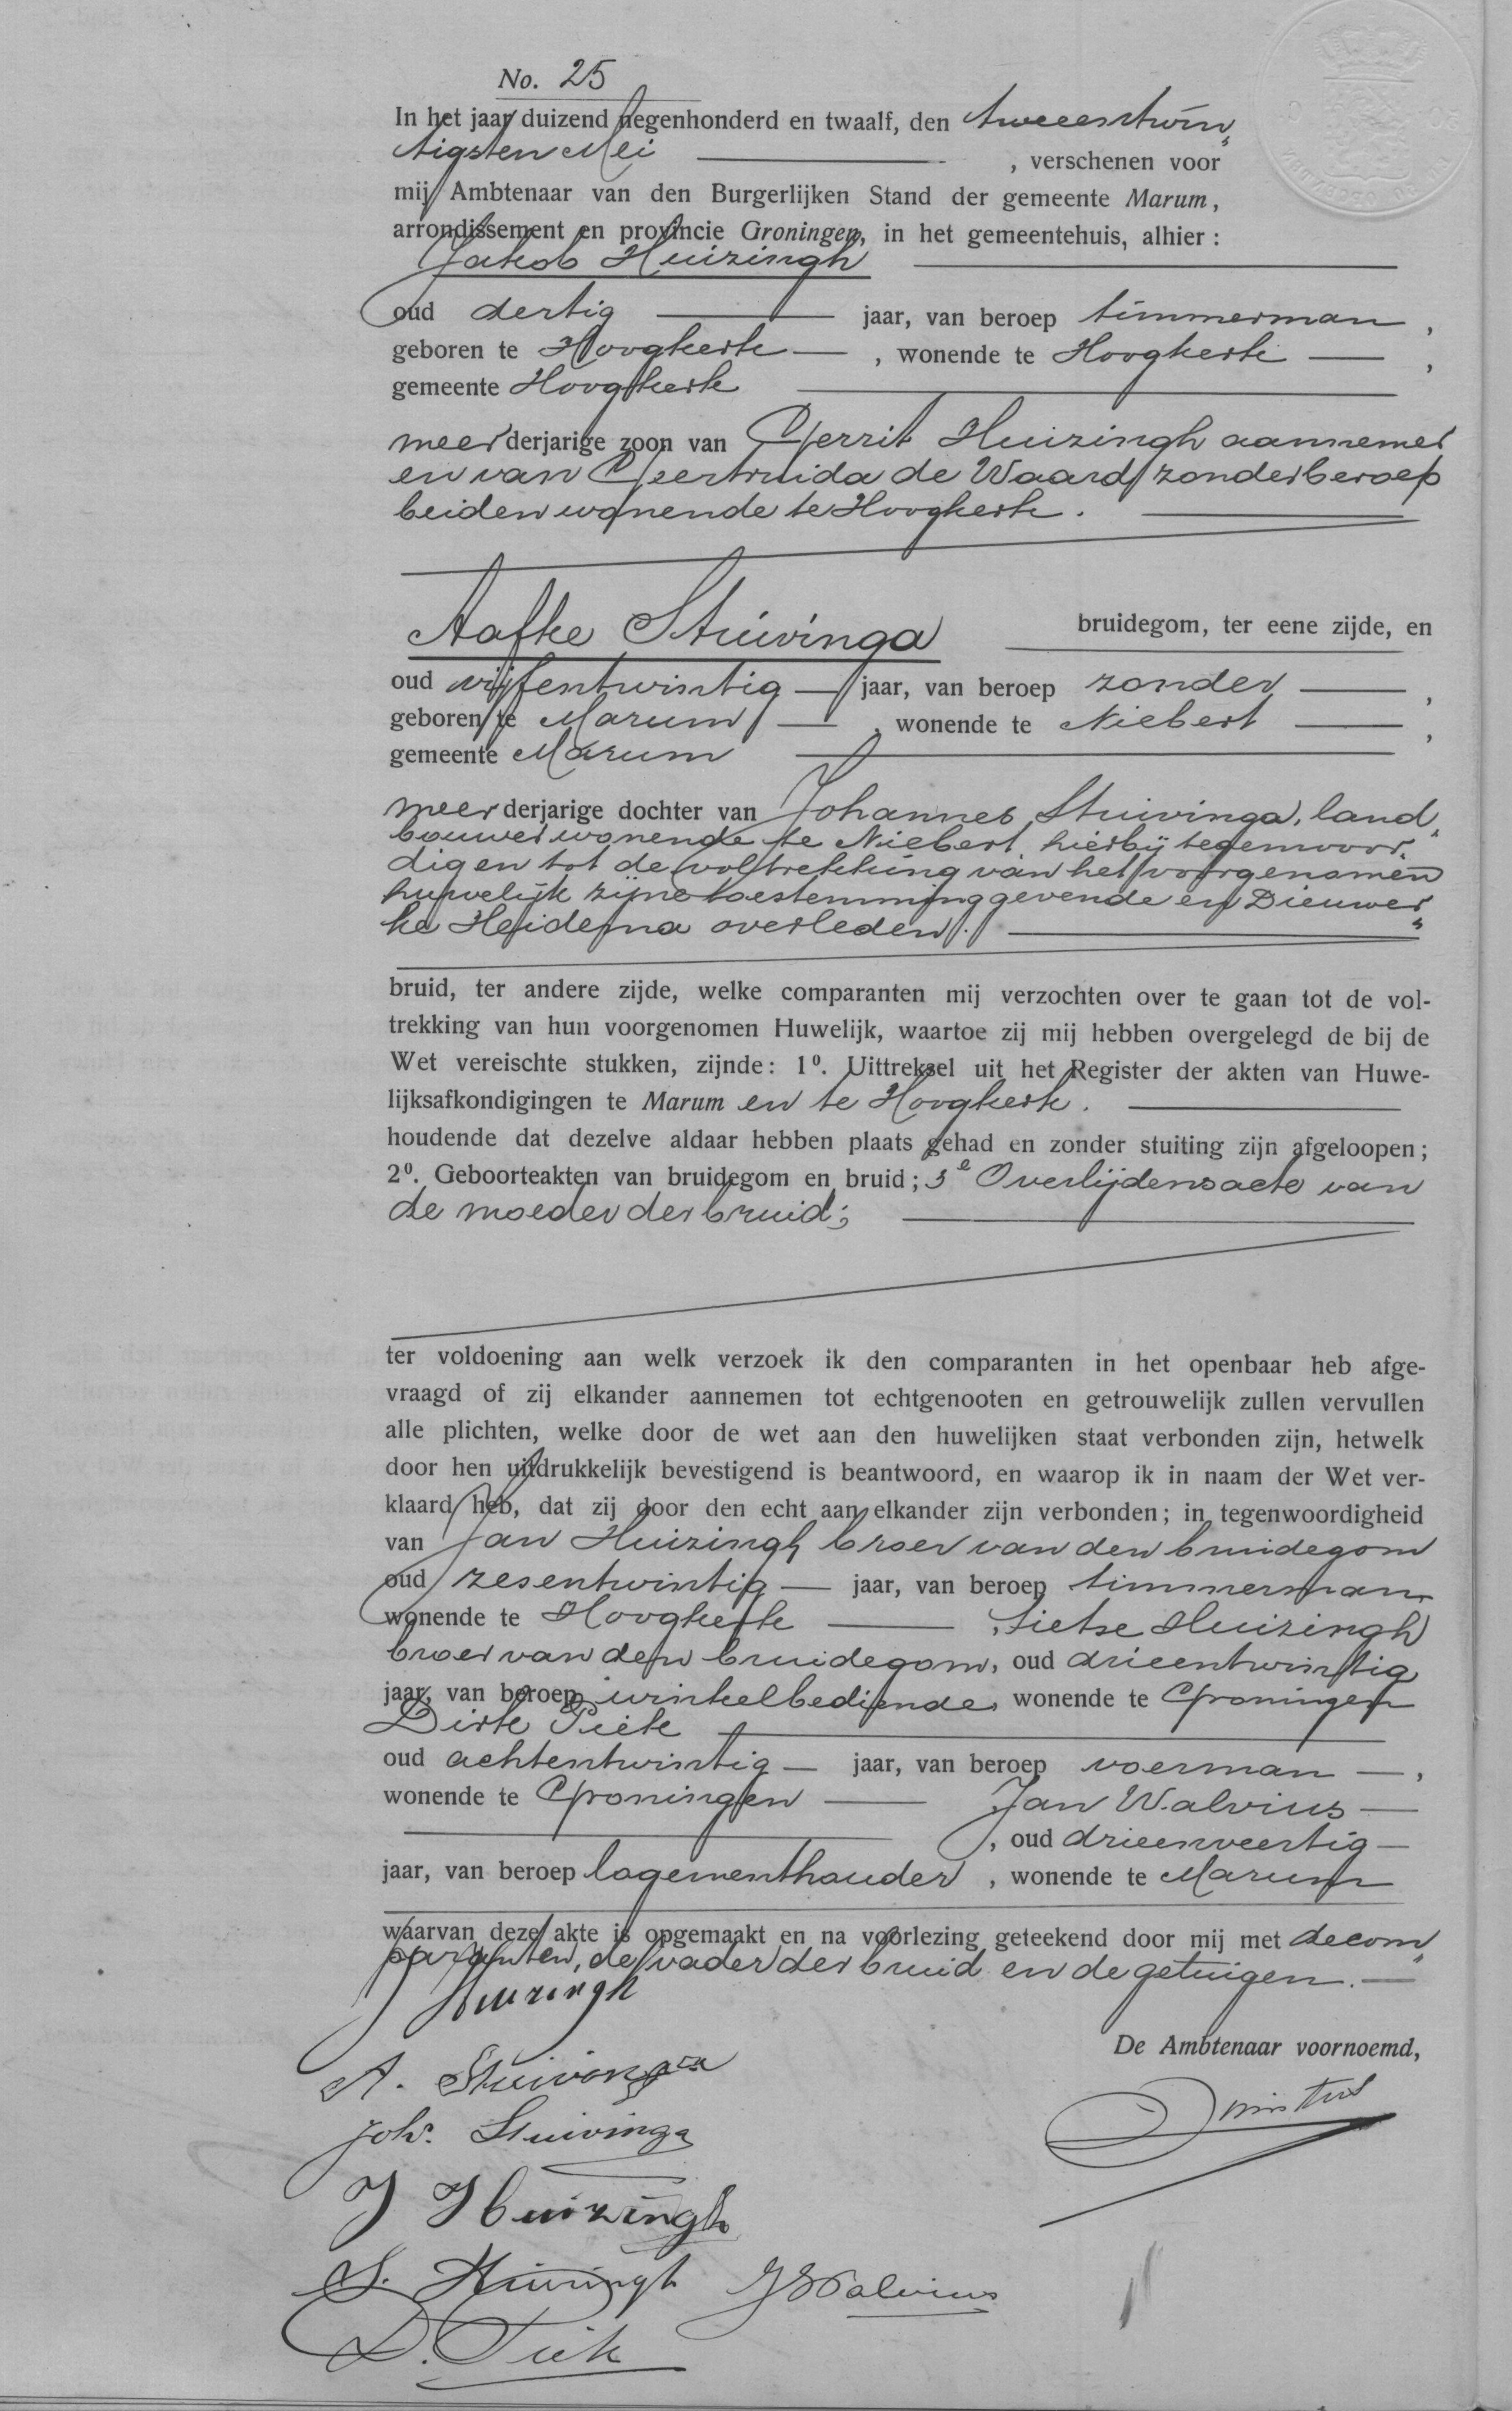 No. 25
In het jaar duizend negenhonderd en twaalf, den tweeentwin„
tigsten Mei , verschenen voor
mij Ambtenaar van den Burgerlijken Stand der gemeente Marum,
arrondissement en provincie Groningen, in het gemeentehuis, alhier :
Jakob Huizingh
oud dertig jaar, van beroep timmerman ,
geboren te Hoogkerk — , wonende te Hoogkerk — ,
gemeente Hoogkerk
meerderjarige zoon van Gerrit Huizingh aannemer
en van Geertruida de Waard, zonder beroep
beiden wonende te Hoogkerk.
bruidegom, ter eene zijde, en
Aafke Stuivinga
oud vijfentwintig — jaar, van beroep zonder — ,
geboren te Marum — , wonende te Niebert — ,
gemeente Marum
meerderjarige dochter van Johannes Stuivinga, land„
bouwer wonende te Niebert, hierbij tegenwoor„
dig en tot de voltrekking van het voorgenomen
huwelijk zijne toestemming gevende en Dieuwer„
ke Heidema overleden.
bruid, ter andere zijde, welke comparanten mij verzochten over te gaan tot de vol-
trekking van hun voorgenomen Huwelijk, waartoe zij mij hebben overgelegd de bij de
Wet vereischte stukken, zijnde: 1⁰. Uittreksel uit het Register der akten van Huwe-
lijksafkondigingen te Marum en te Hoogkerk.
houdende dat dezelve aldaar hebben plaats gehad en zonder stuiting zijn afgeloopen;
2⁰. Geboorteakten van bruidegom en bruid; 3e Overlijdensacte van
de moeder der bruid;
ter voldoening aan welk verzoek ik den comparanten in het openbaar heb afge-
vraagd of zij elkander aannemen tot echtgenooten en getrouwelijk zullen vervullen
alle plichten, welke door de wet aan den huwelijken staat verbonden zijn, hetwelk
door hen uitdrukkelijk bevestigend is beantwoord, en waarop ik in naam der Wet ver-
klaard heb, dat zij door den echt aan elkander zijn verbonden; in tegenwoordigheid
van Jan Huizingh broer van den bruidegom
oud zesentwintig — jaar, van beroep timmerman
wonende te Hoogkerk — , Sietse Huizingh
broer van den bruidegom, oud drieentwintig
jaar, van beroep winkelbediende, wonende te Groningen
Dirk Piek
oud achtentwintig — jaar, van beroep voerman — ,
wonende te Groningen — Jan Walvius —
, oud drieenveertig —
jaar, van beroep logementhouder , wonende te Marum
waarvan deze akte is opgemaakt en na voorlezing geteekend door mij met de com„
paranten, de vader der bruid en de getuigen. —
J Huizingh
De Ambtenaar voornoemd,
A. Stuivinga
Joh. Stuivinga
J Huizingh
S. Huizingh J Walvius
D. Piek